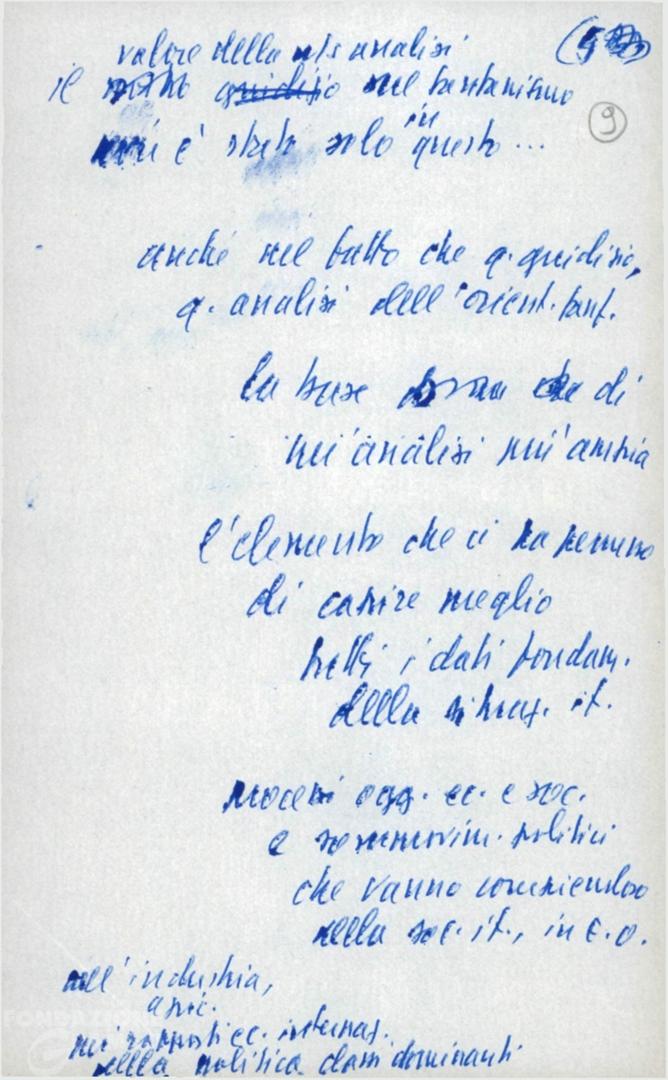 (5
valore della ns analisi
il giudizio sul fanfanismo
9
non è stato solo in questo ...
anche nel fatto che q. giudizio,
q. analisi dell'orient. fanf.
la base di
un'analisi più ampia
l'elemento che ci ha permesso
di capire meglio
tutti i dati fondam.
della situaz. it.
processi ogg. ec. e soc.
e sommovim. politici
che vanno compiendosi
nella soc. it., in E. O.
nell'industria,
agric.
nei rapporti ec. internaz.
nella politica classi dominanti
FONDAZIONE